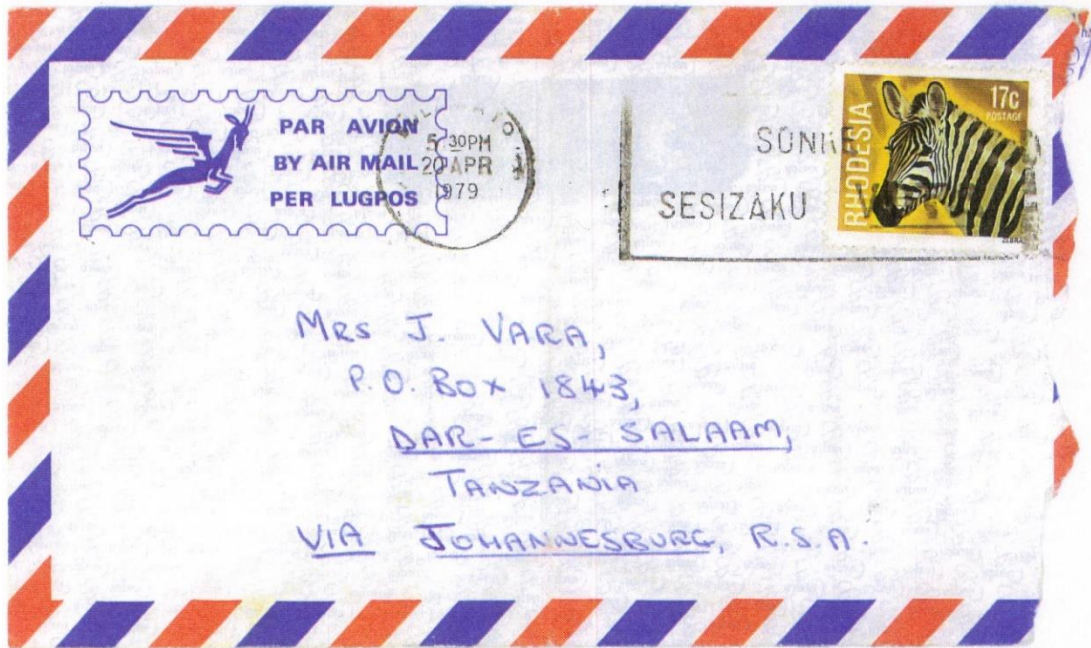 PAR AVION
BY AIR MAIL
PER LUGPOS
5 30PM
20 APR
1979
SESIZAKU
RHODESIA
17c
POSTAGE
ZEBRA
MRS J. VARA,
P.O. BOX 1843,
DAR-ES-SALAAM,
TANZANIA
VIA JOHANNESBURG, R.S.A.